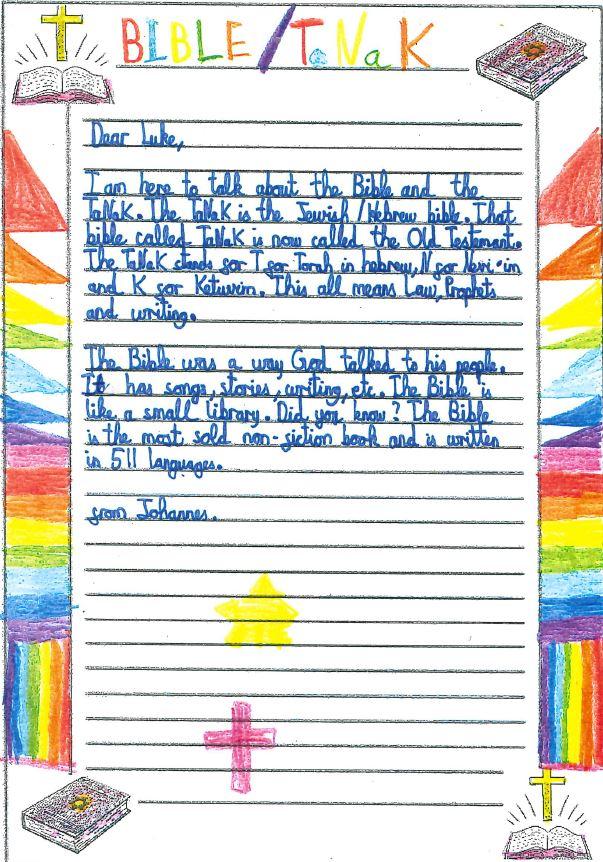 BIBLE/TaNaK
Dear Luke,
I am here to talk about the Bible and the
TaNaK. The TaNaK is the Jewish/Hebrew bible. That
bible called TaNaK is now called the Old Testemant.
The TaNaK stands for T for Torah in hebrew, N for Nevi'im
and K for Ketuvim. This all means Law, Prophets
and writing.
The Bible was a way God talked to his people.
It has songs, stories, writing, etc. The Bible is
like a small library. Did you know? The Bible
is the most sold non-fiction book and is written
in 511 languages.
from Johannes.